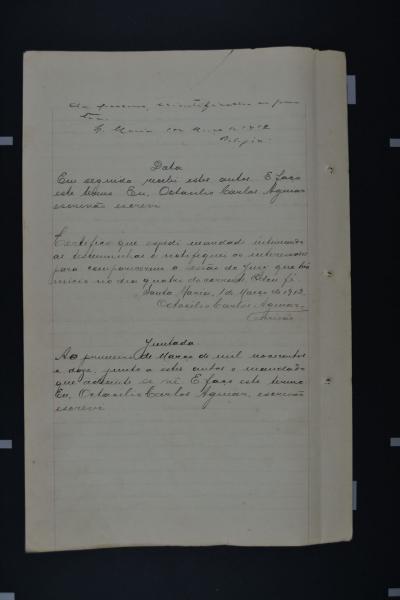 S. Maria 1 de Março de 1912
Data
Em seguida recebi estes autos. E faço
este termo. Eu, Octacilio Carlos Aguiar
escrivão escrevi
Certifico que expedi mandado intimando
as testemunhas e notifiquei os interessados
para comparecerem a sessão do Jury que tem
inicio no dia quatro do corrente. Dou fé.
Santa Maria, 1 de Março de 1912.
Octacilio Carlos Aguiar,
Escrivão
Juntada
Ao primeiro de Março de mil novecentos
e doze, junto a estes autos o mandado
que adeante se vê. E faço este termo
Eu, Octacilio Carlos Aguiar, escrivão
escrevi